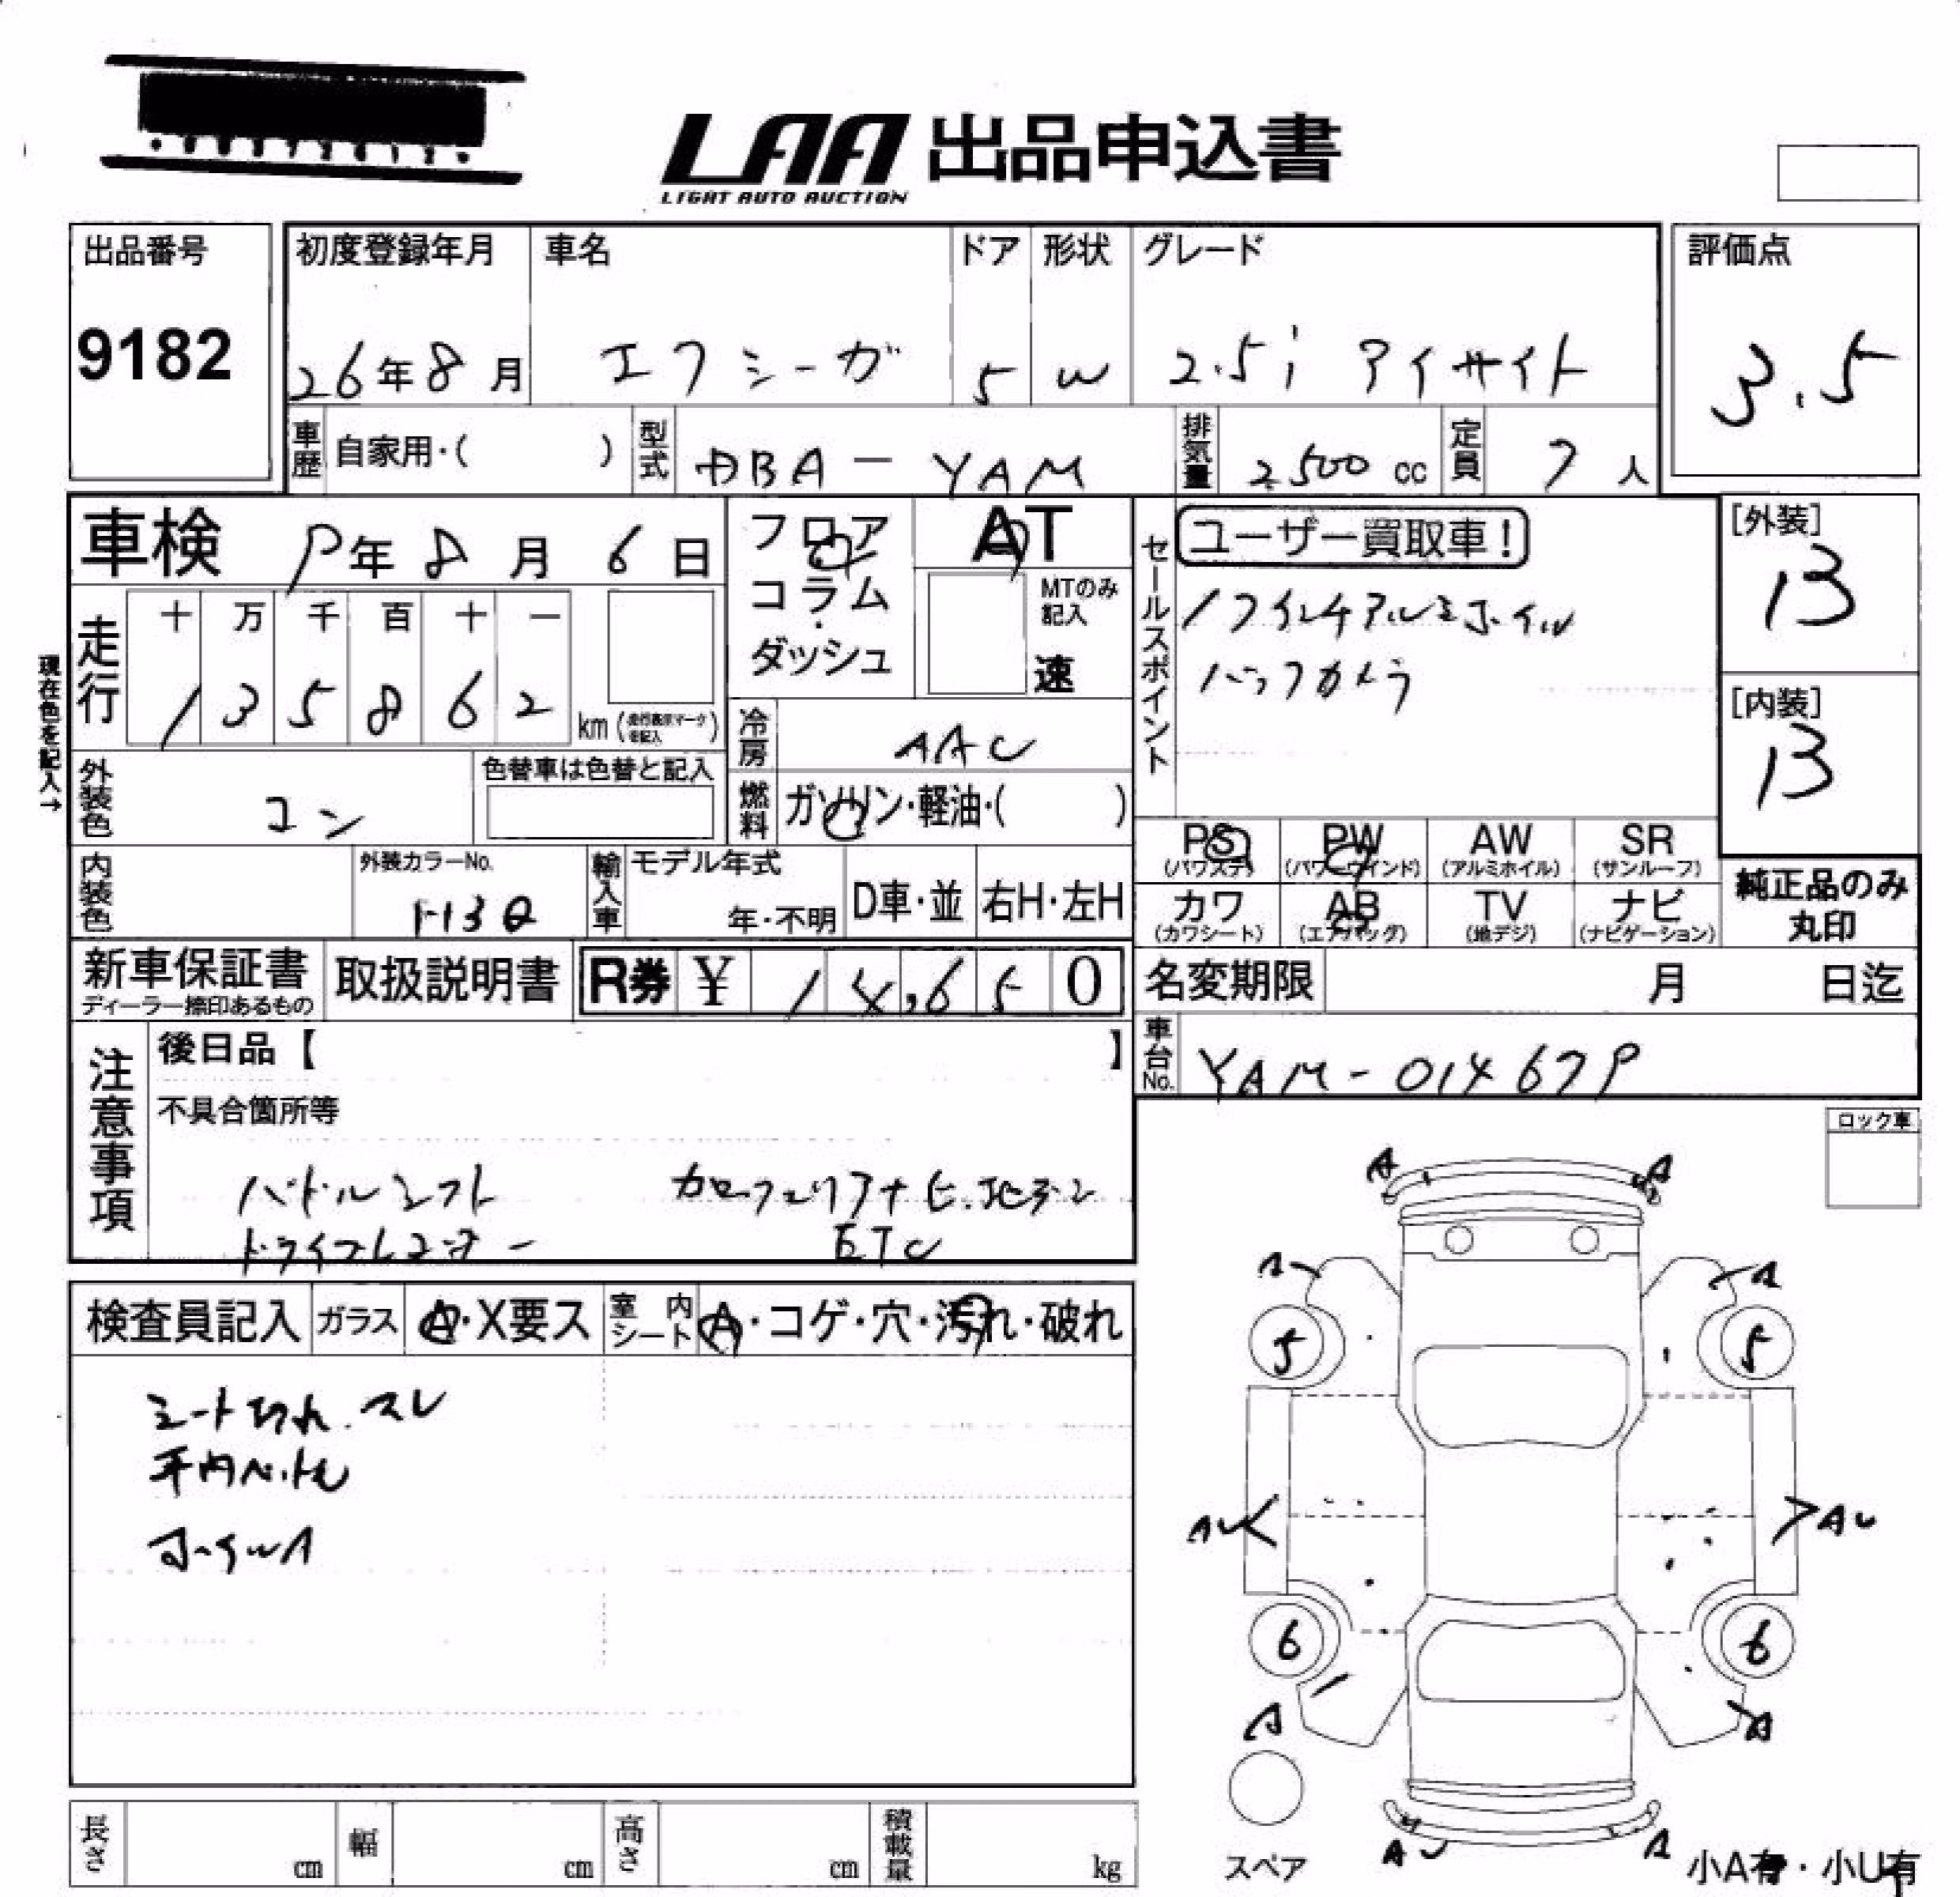 LAA 出品申込書
LIGHT AUTO AUCTION
出品番号
9182
初度登録年月
26年8月
車名
エクシーガ
ドア
5
形状
W
グレード
2.5i アイサイト
評価点
3.5
車歴
自家用・( )
型式
DBA-YAM
排気量
2500 cc
定員
7人
車検 9年8月6日
フロア
コラム
・
ダッシュ
AT
MTのみ
記入
速
セールスポイント
ユーザー買取車!
17インチアルミホイル
バックカメラ
[外装]
B
[内装]
B
現在色を記入→
走行
十 万 千 百 十 一
1 3 5 8 6 2
km (走行表示マーク
を記入)
冷房
AAC
外装色
コン
色替車は色替と記入
燃料
ガソリン・軽油・( )
内装色
外装カラーNo.
H3Q
輸入車
モデル年式
年・不明
D車・並
右H・左H
PS
(パワステ)
PW
(パワーウインド)
AW
(アルミホイル)
SR
(サンルーフ)
カワ
(カワシート)
AB
(エアバッグ)
TV
(地デジ)
ナビ
(ナビゲーション)
純正品のみ
丸印
新車保証書
ディーラー捺印あるもの
取扱説明書
R券 ¥ 14,650
名変期限 月 日迄
車台No.
YAM-014679
注意事項
後日品【 】
不具合箇所等
パドルシフト カロッツェリアナビ.地デジ
ドライブレコーダー ETC
ロック車
検査員記入
ガラス
A・X要ス
室内シート
A・コゲ・穴・汚れ・破れ
シート切れ.スレ
ホイルA
A A
A A
5 5
AU AU
6 6
A A
スペア
AU A
小A有・小U有
長さ cm
幅 cm
高さ cm
積載量 kg